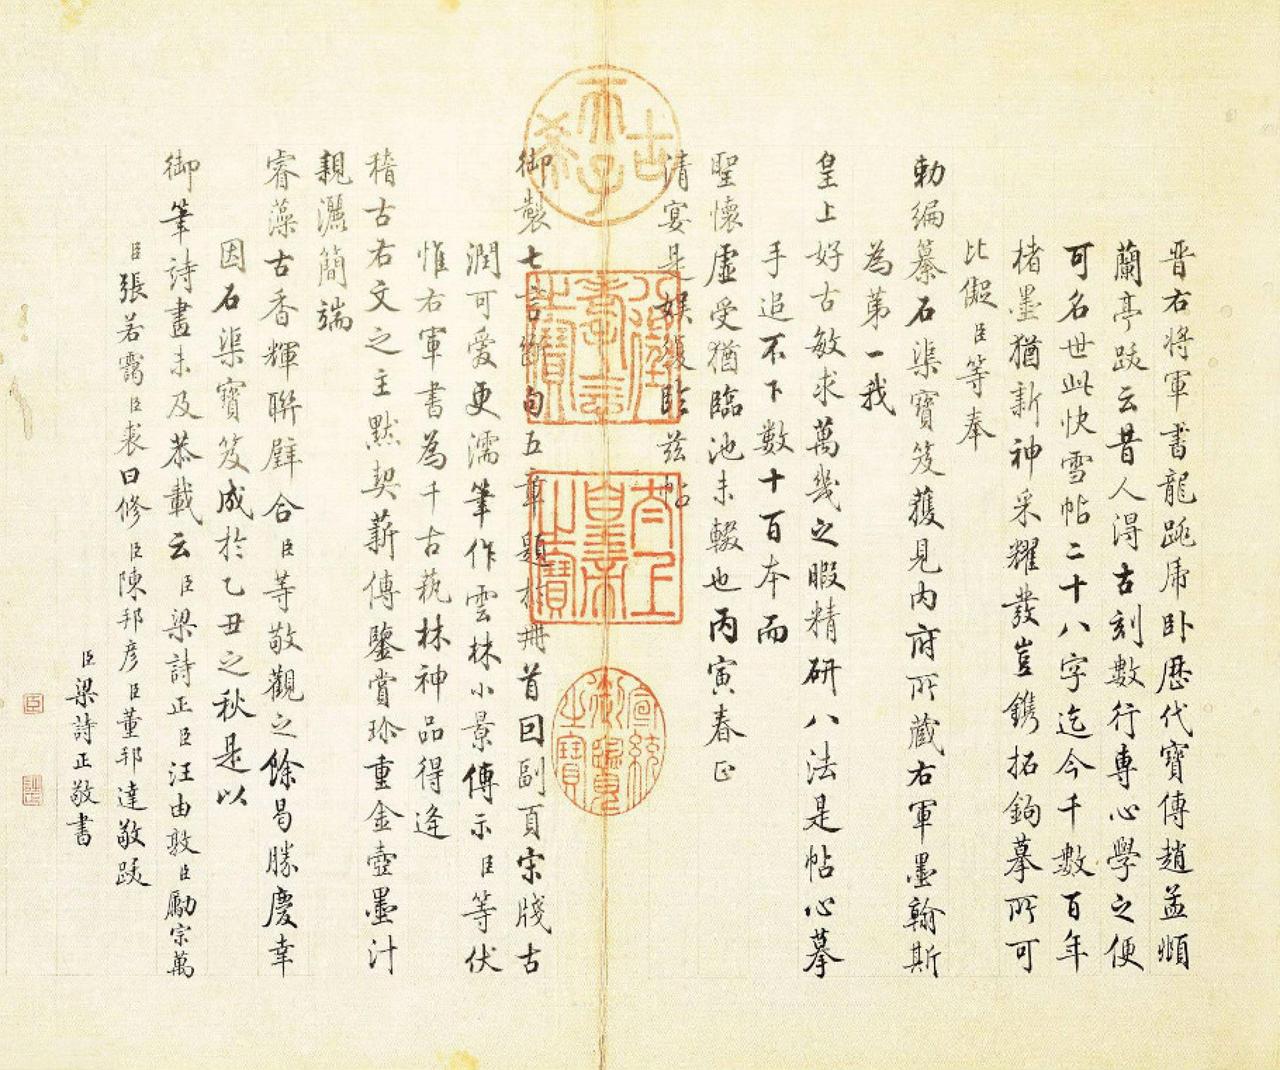 晋右将軍書龍跳虎卧歷代寶傳趙孟頫
蘭亭跋云昔人得古刻數行專心學之便
可名世此快雪帖二十八字迄今千數百年
楮墨猶新神采耀發豈鐫拓鉤摹所可
比儗臣等奉
勅編纂石渠寶笈獲見内府所藏右軍墨翰斯
為第一我
皇上好古敏求萬幾之暇精研八法是帖心摹
手追不下數十百本而
聖懷虛受猶臨池未輟也丙寅春正
清宴是娱復臨兹帖
御製七言斷句五章題於冊首回副頁宋牋古
潤可愛更濡筆作雲林小景傳示臣等伏
惟右軍書為千古蓺林神品得逢
稽古右文之主默契薪傳鑒賞珍重金壺墨汁
親灑簡端
睿藻古香輝聯璧合臣等敬觀之餘曷勝慶幸
因石渠寶笈成於乙丑之秋是以
御筆詩畫未及恭載云臣梁詩正臣汪由敦臣勵宗萬
臣張若靄臣裘曰修臣陳邦彦臣董邦達敬跋
臣梁詩正敬書
古希天子
八徵耄念之寶
太上皇帝之寶
宣統御覽之寶
臣